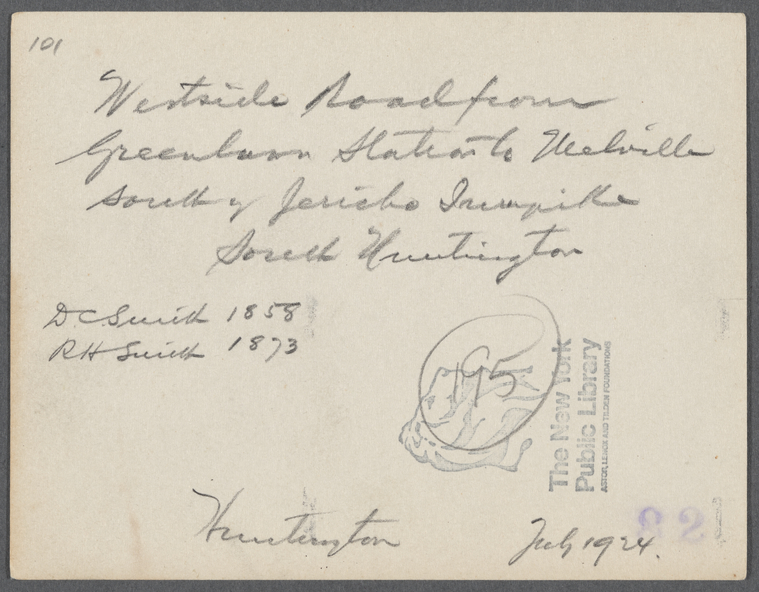 101
Westside Road from
Greenlawn Station to Melville
South of Jericho Turnpike
South Huntington
D.C. Smith 1858
R H Smith 1873
195
The New York
Public Library
ASTOR, LENOX AND TILDEN FOUNDATIONS
Huntington
July 1924.